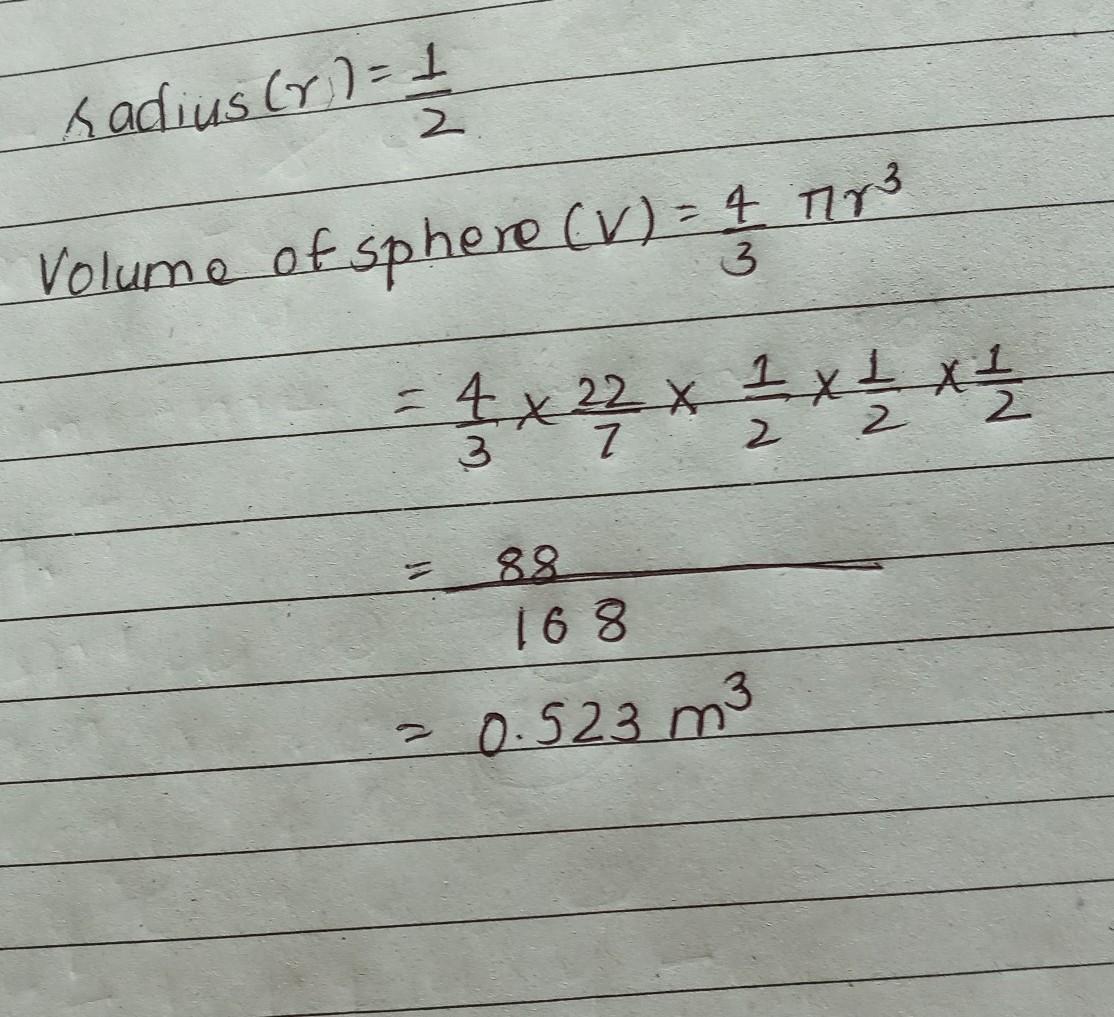 radius(r) = 1/2
Volume of sphere (V) = 4/3 πr³
= 4/3 × 22/7 × 1/2 × 1/2 × 1/2
= 88/168
= 0.523 m³